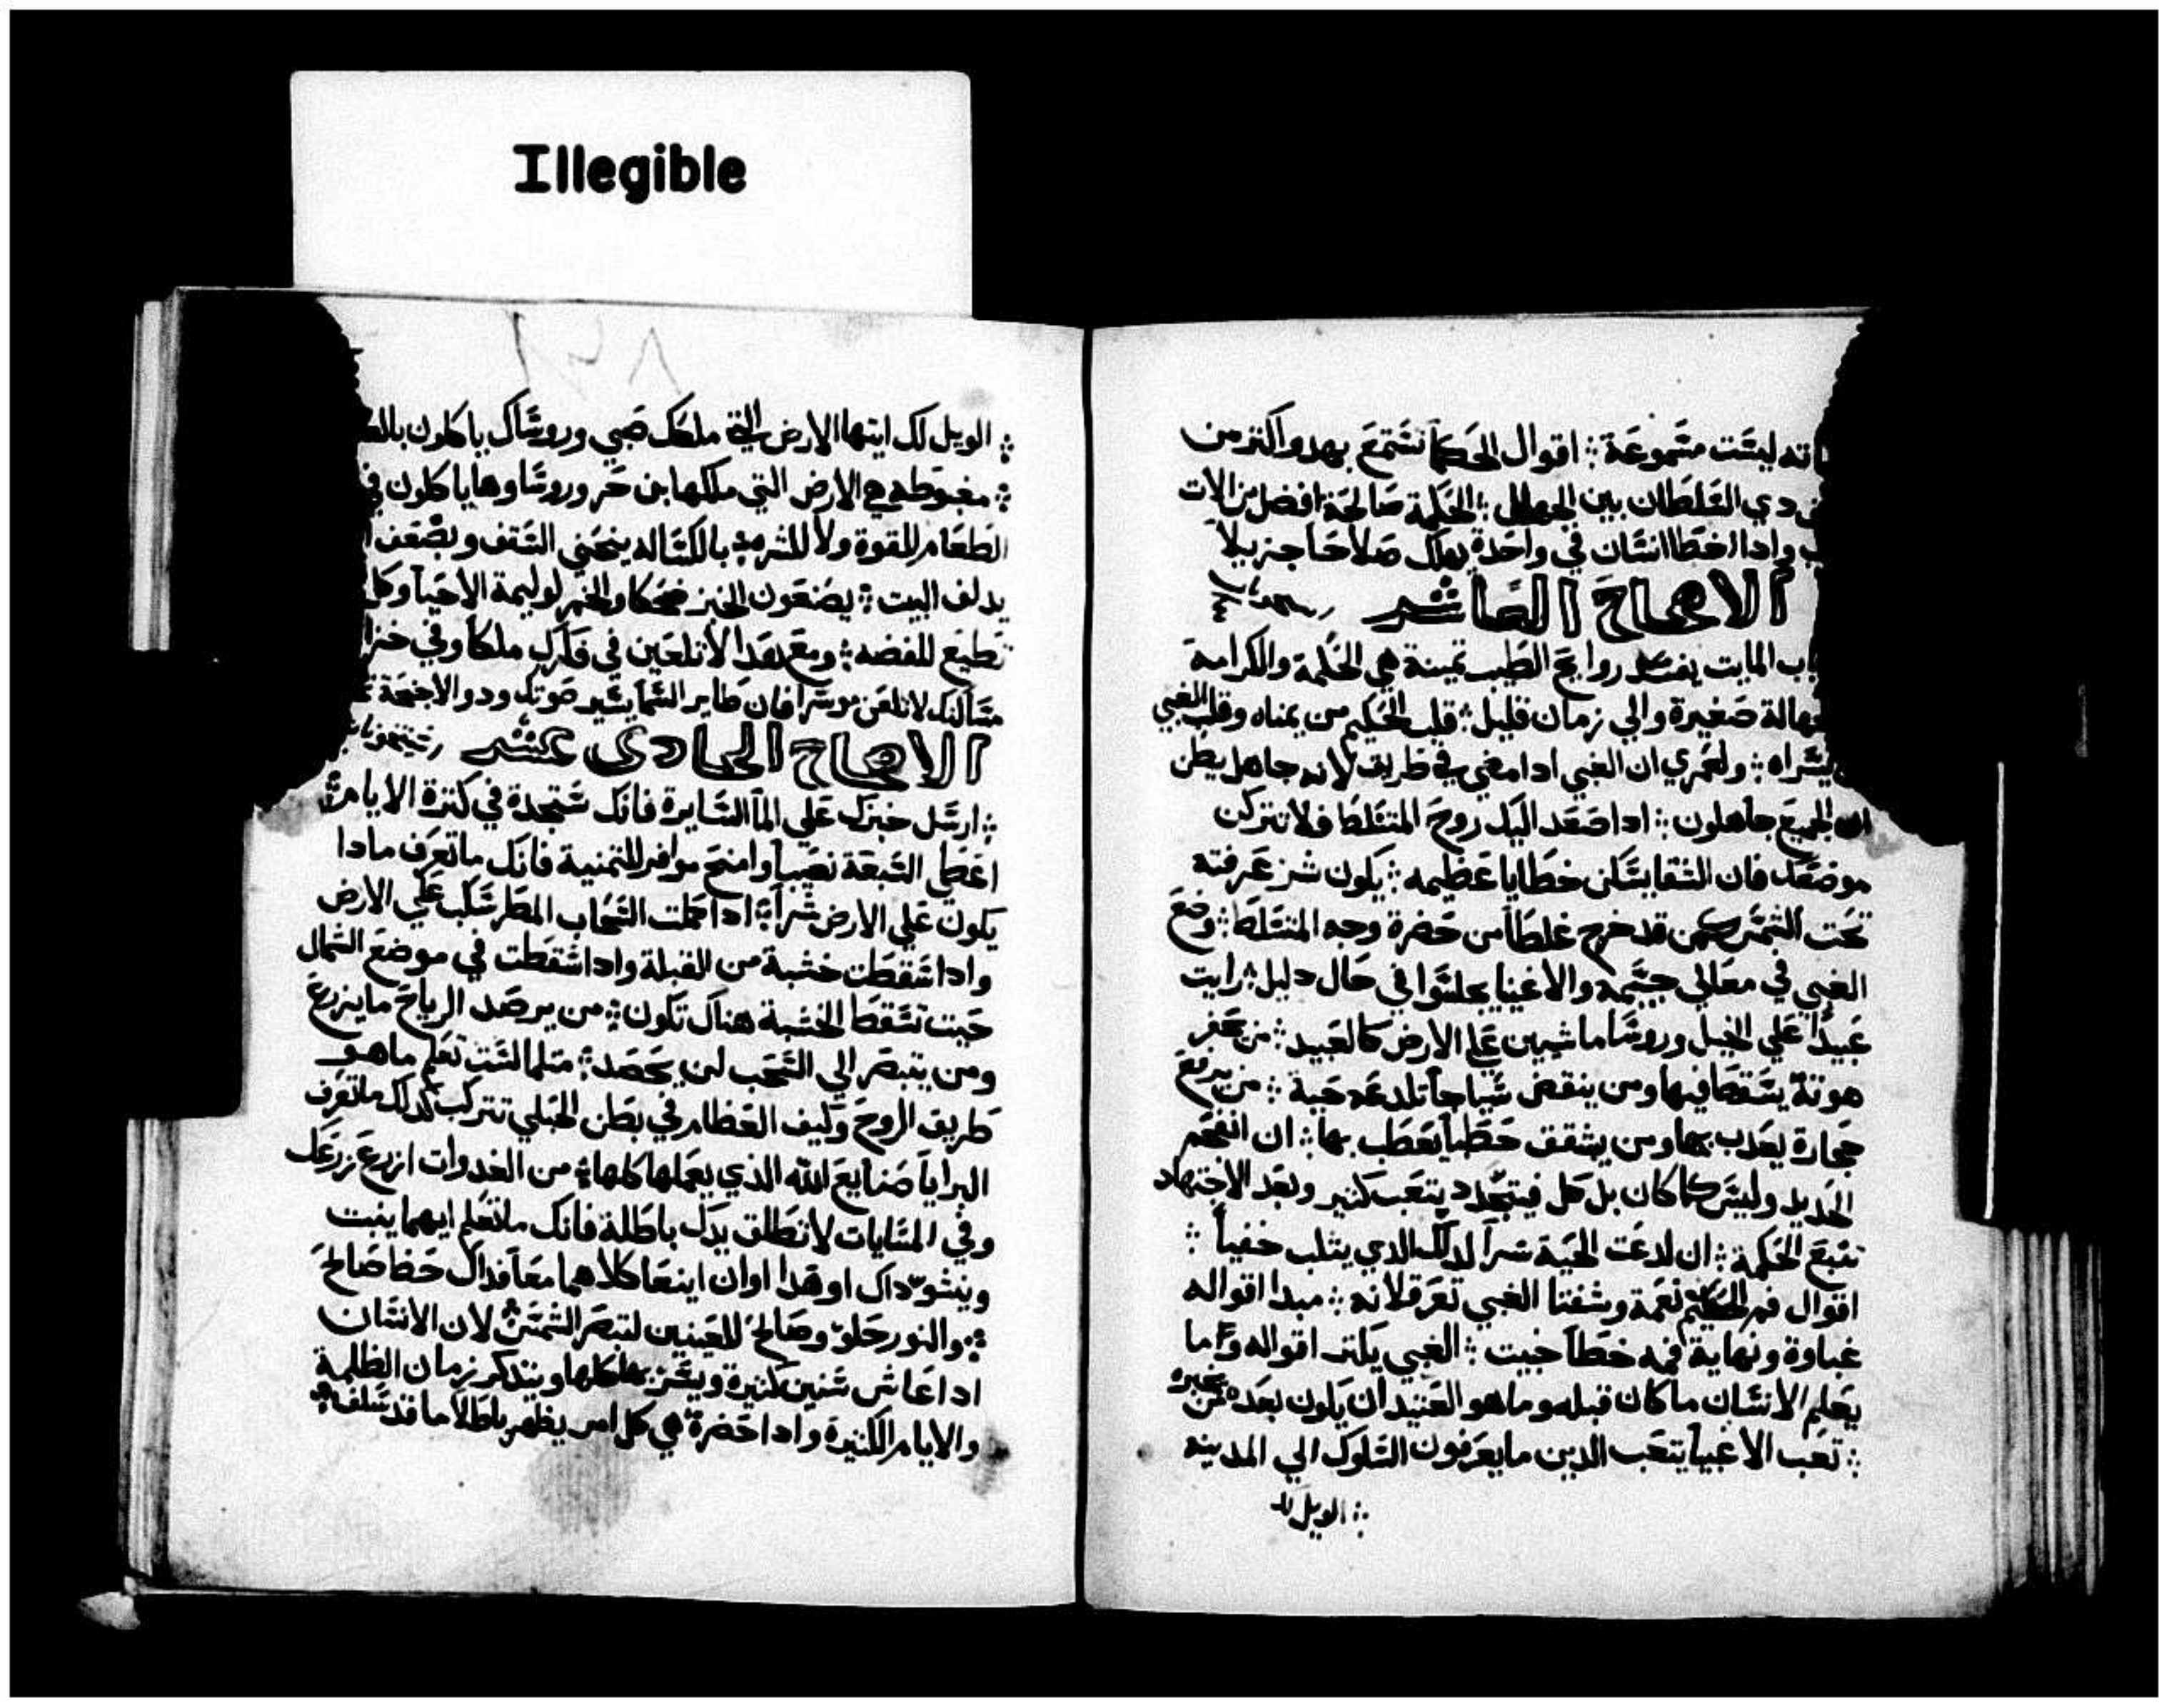 Illegible
اته ليست مسموعة ܀ اقوال الحكما تستمع بهدو اكتر من
دي الغلطان بين الجهال ܀ الحكمة صالحة افضل من الات
وادا اخطا انسان في واحدة يهلك صلاحا جزيلا
الاصحاح العاشر
اب المايت يفسد روايح الطيب تمينة هي الحكمة والكرامة
جهالة صغيرة والي زمان قليل ܀ قلب الحكيم من يمناه وقلب الغبي
يسراه ܀ ولعمري ان الغبي ادا مضي في طريق لانه جاهل يظن
ان الجميع جاهلون ܀ ادا صعد اليك روح المتسلط فلا تتركن
موضعك فان الشفا يسكن خطايا عظيمه ܀ يكون شر عرفته
تحت الشمس كمن قد خرج غلطا من حضرة وجه المتسلط ܀ وضع
الغبي في معالي جسيمه والاغنيا يجلسوا في حال دليل ܀ رايت
عبيدا علي الخيل وروسا ماشيين علي الارض كالعبيد ܀ من يحفر
هوتة يسقط فيها ومن ينقض سياجا تلدغه حية ܀ من يرفع
حجارة يعدب بها ومن يشقق حطبا يعطب بها ܀ ان انفحم
الحديد وليس كما كان بل كل فيتجدد بتعب كتير وبعد الاجتهاد
تتبع الحكمة ܀ ان لدغت الحية سرا لدلك الدي يتلب خفيا ܀
اقوال فم الحكيم نعمة وشفتا الغبي تغرقلانه ܀ مبدا اقواله
غباوة ونهاية فمه خطا خبيت ܀ الغبي يكتر اقواله وما
يعلم الانسان ما كان قبله وما هو العتيد ان يكون بعده من يخبره
܀ تعب الاغبيا يتعب الدين ما يعرفون السلوك الي المدينه
܀ الويل لك
٢٨
܀ الويل لك ايتها الارض التي ملكك صبي وروساك ياكلون بال
܀ مغبوطه هي الارض التي ملكها بن حر وروساوها ياكلون في
الطعام للقوة ولا للشره ܀ بالكساله ينحني السقف وبضعف
يدلف البيت ܀ يصنعون الخبز ضحكا والخمر لوليمة الاحيا وكل
تطيع للفضه ܀ ومع هدا لا تلعين في فكرك ملكا وفي خزا
مسالنك لا تلعن موسرا فان طاير السما يسير صوتك ودو الاجنحة
الاصحاح الحادي عشر
܀ ارسل خبزك علي الما السايرة فانك ستجدة في كترة الايام
اعطي السبعة نصيبا وامنح موافر للتمنية فانك ما تعرف مادا
يكون علي الارض شرا ܀ ادا حملت السحاب المطر سكب علي الارض
وادا سقطت خشبة من القبلة وادا سقطت في موضع الشمال
حيت تسقط الخشبة هناك تكون ܀ من يرصد الرياح ما يزرع
ومن يتبصر الي السحب لن يحصد ܀ متلما لست تعلم ما هو
طريق الروح وكيف العظام في بطن الحبلي تتركب كدلك ما تعرف
البرايا صنايع الله الذي يعملها كلها ܀ من الغدوات ازرع زرعك
وفي المسايات لا تطلق يدك باطلة فانك ما تعلم ايهما ينبت
وينشو داك او هدا اوان اينعا كلاهما معا فداك حظا صالح
܀ والنور حلو وصالح للعينين لتبصر الشمس ܀ لان الانسان
ادا عاش سنين كتيرة ويسر بها كلها ويتدكر زمان الظلمة
والايام الكتيرة وادا حضرة هي كل امر يظهر باطلا ما قد سلف ܀